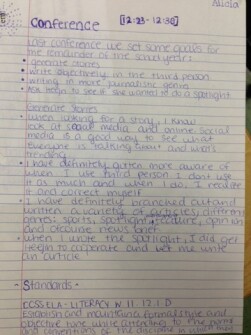 Alicia
Conference [12:23 - 12:30]
Last conference we set some goals for
the remainder of the school year:
• generate stories
• write objectively in the third person
• writing in more journalistic genres
• Ask to see if she wanted to do a spotlight
Generate Stories
• when asking for a story, I know
look at social media and online. Social
media is a good way to see what
everyone is "talking" and what's
trending.
• I have definitely gotten more aware of
when I use third person. I don't use
it as much and when I do, I realize
it and correct myself
• I have definitely branched out and
written a variety of articles, different
genres, sports, spotlight, feature, opinion
and of course news brief
• when I wrote the spotlight, I did get
to cooperate and let me write
an article.
- Standards -
CCSS.ELA-LITERACY.W.11-12.1.D
Establish and maintain a formal style and
objective tone while attending to the norms
and conventions of the discipline in which